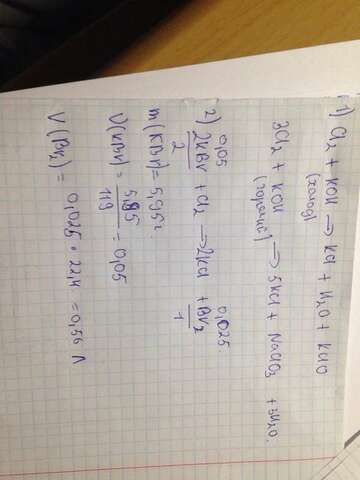 1) Cl2 + KOH → KCl + H2O + KClO
(холод)
3Cl2 + KOH → 5KCl + NaClO3 + 3H2O.
(горячий)
0,05 0,025
2) 2KBr + Cl2 → 2KCl + Br2
2 1
m(KBr) = 5,95г
ν(KBr) = 5,95/119 = 0,05
V(Br2) = 0,025 · 22,4 = 0,56 л